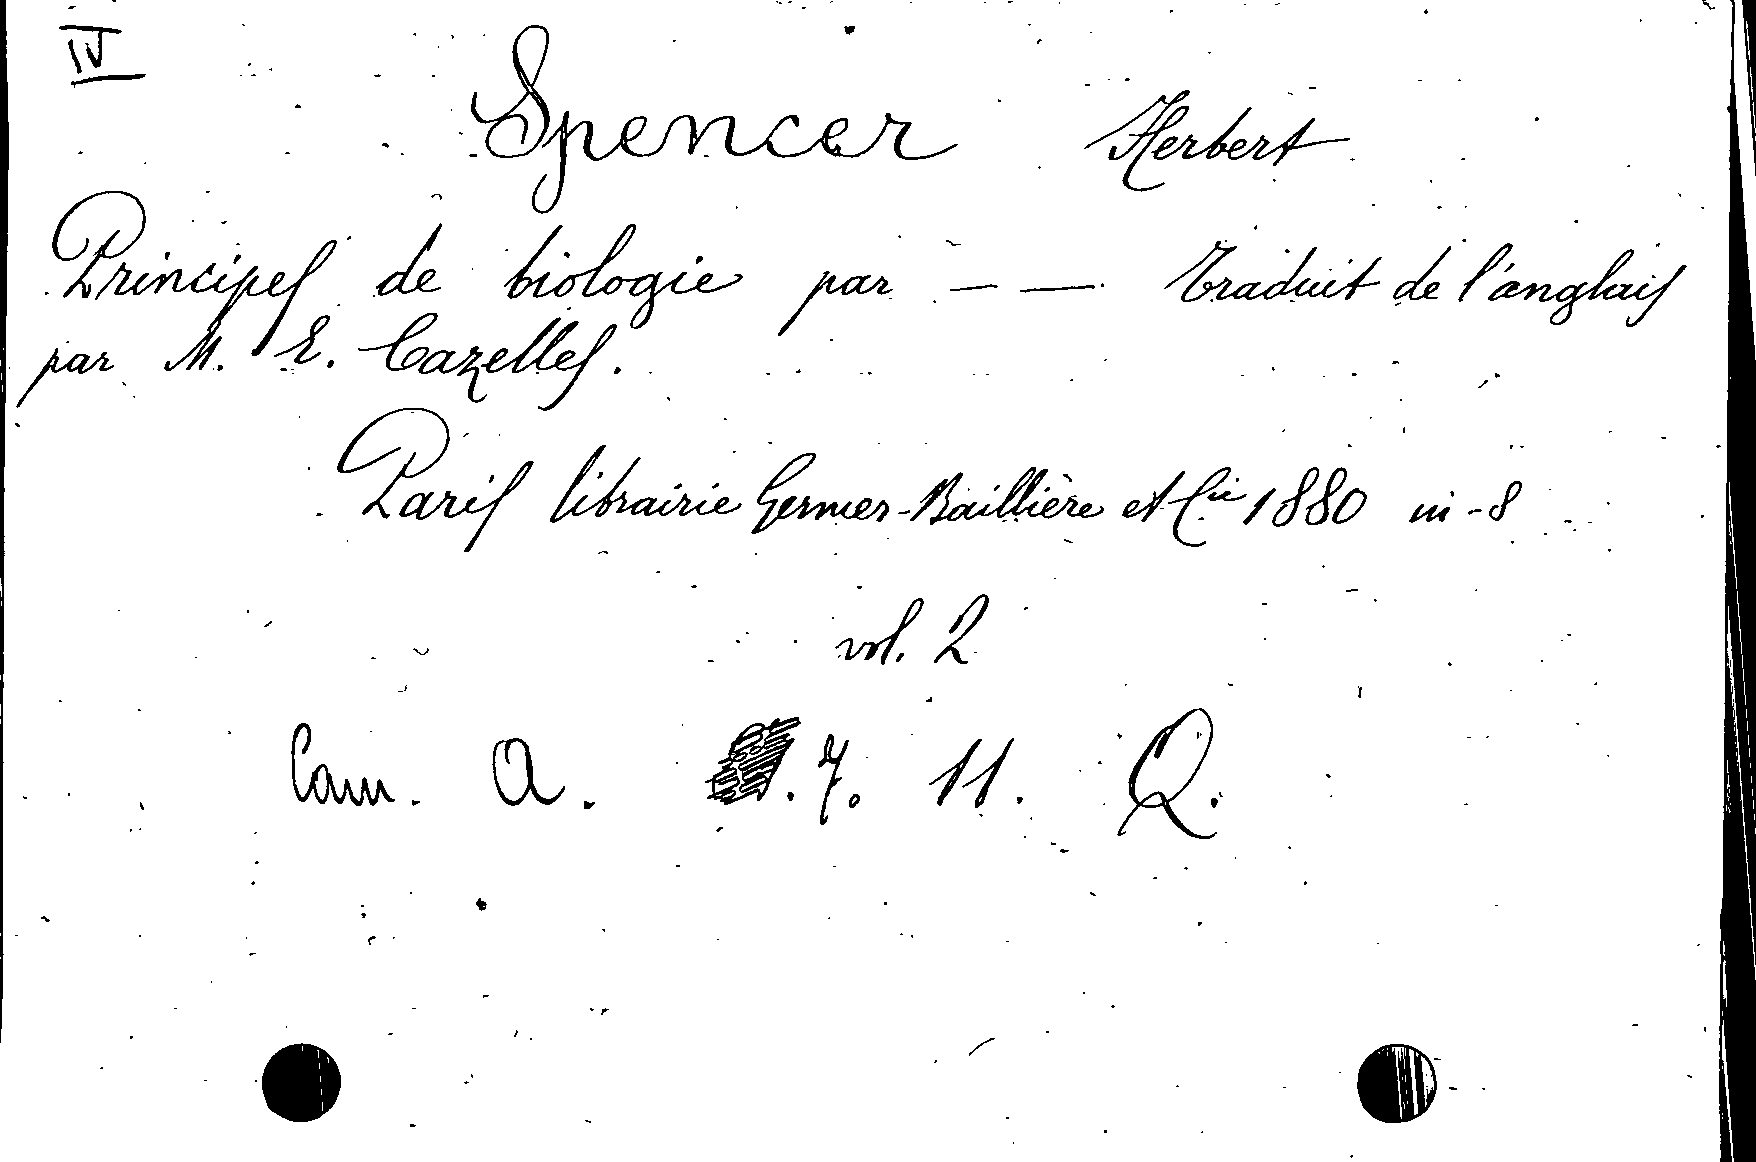 IV
Spencer Herbert
Principes de biologie par — — Traduit de l'anglais
par M. E. Cazelles.
Paris librairie Germer-Baillière et Cie 1880 in-8
vol. 2
Cam. A. . 7. 11. Q.